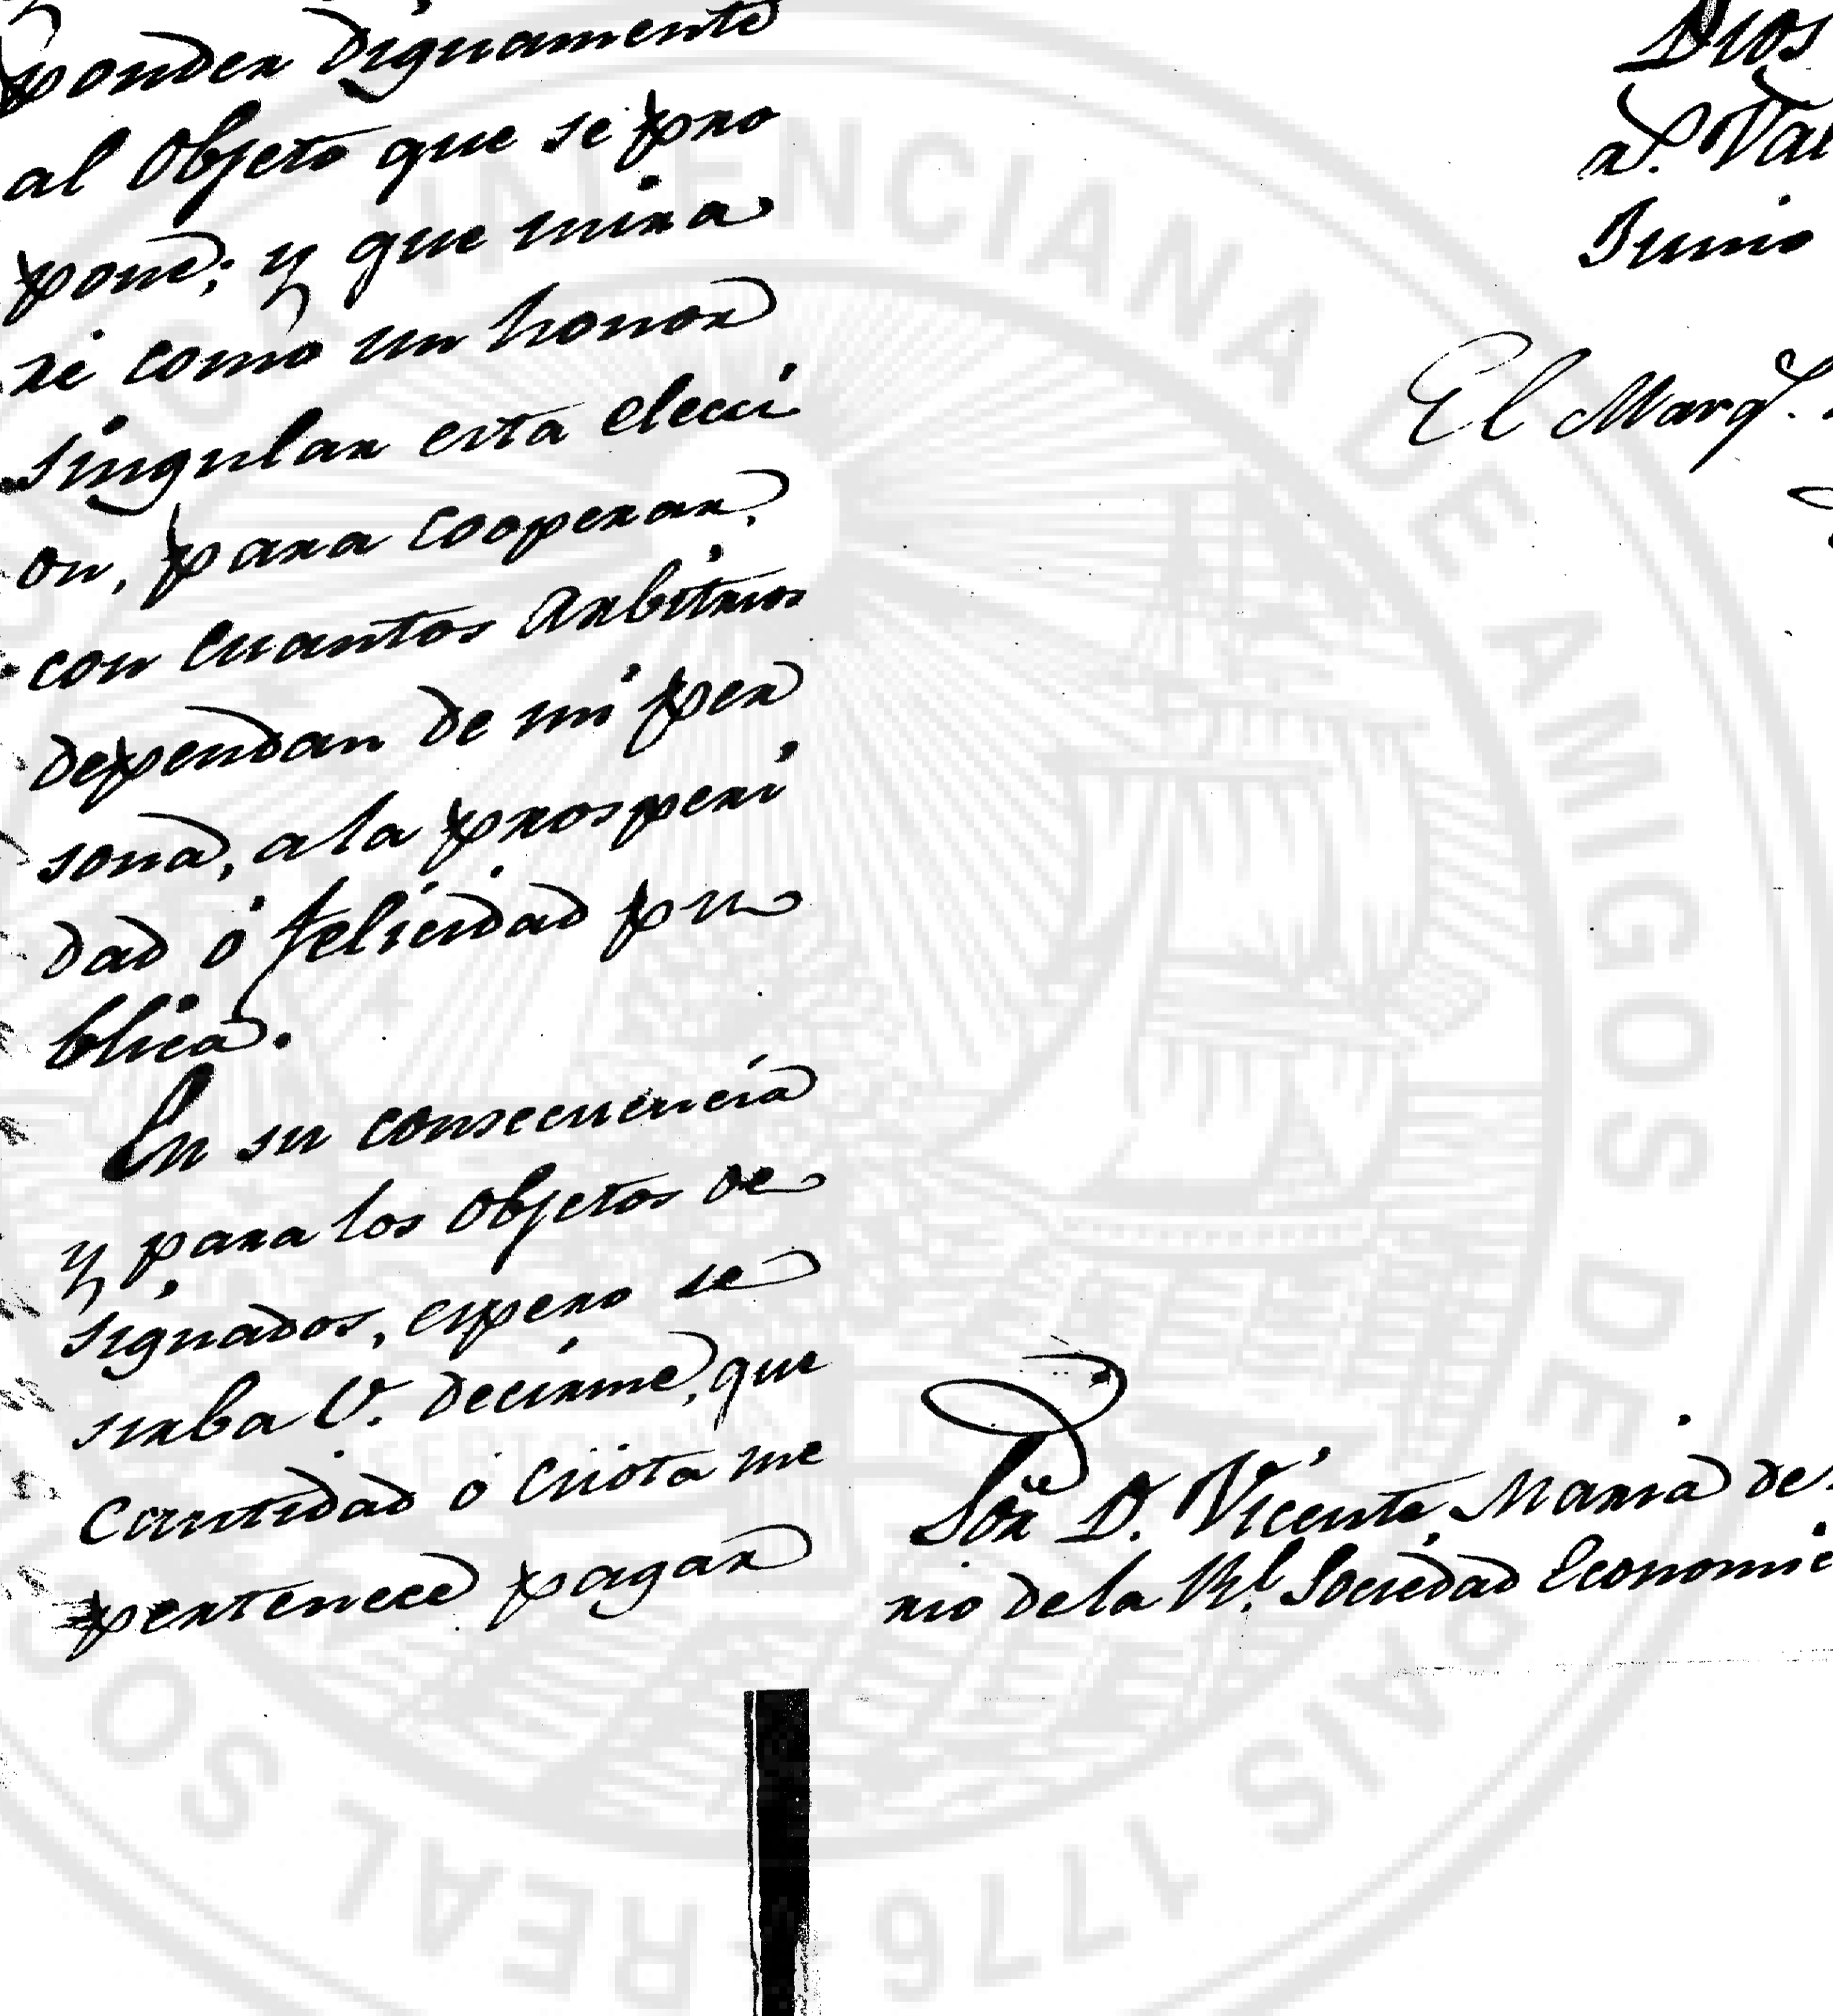 ponder dignamente
al Objeto que se pro
pone; y que mira
ré como un honor
singular esta elecci
on, para cooperar,
con cuantos Arbitrios
dependan de mi per
sona, a la prosperi
dad ó felicidad pu
blica.
En su consecuencia
y para los Objetos de
signados, espero se
sirba V. decirme, que
Cantidad ó Cuota me
pertenece pagar
Dios
a V. Val
Junio
El Marq.^s
Sõr D. Vicente Maria de
rio de la R.^l Sociedad Economic
VALENCIANA DE AMIGOS DE
PAIS 1776 REAL SO